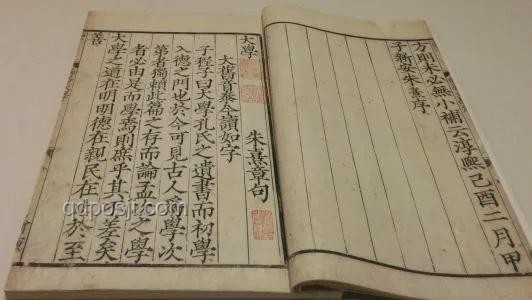 方則未必無小補云淳熙己酉二月甲
子新安朱熹序
大學
大舊音泰今讀如字
朱熹章句
子程子曰大學孔氏之遺書而初學
入德之門也於今可見古人爲學次
第者獨賴此篇之存而論孟之學
者必由是而學焉則庶乎其差矣
大學之道在明明德在親民在於至
善